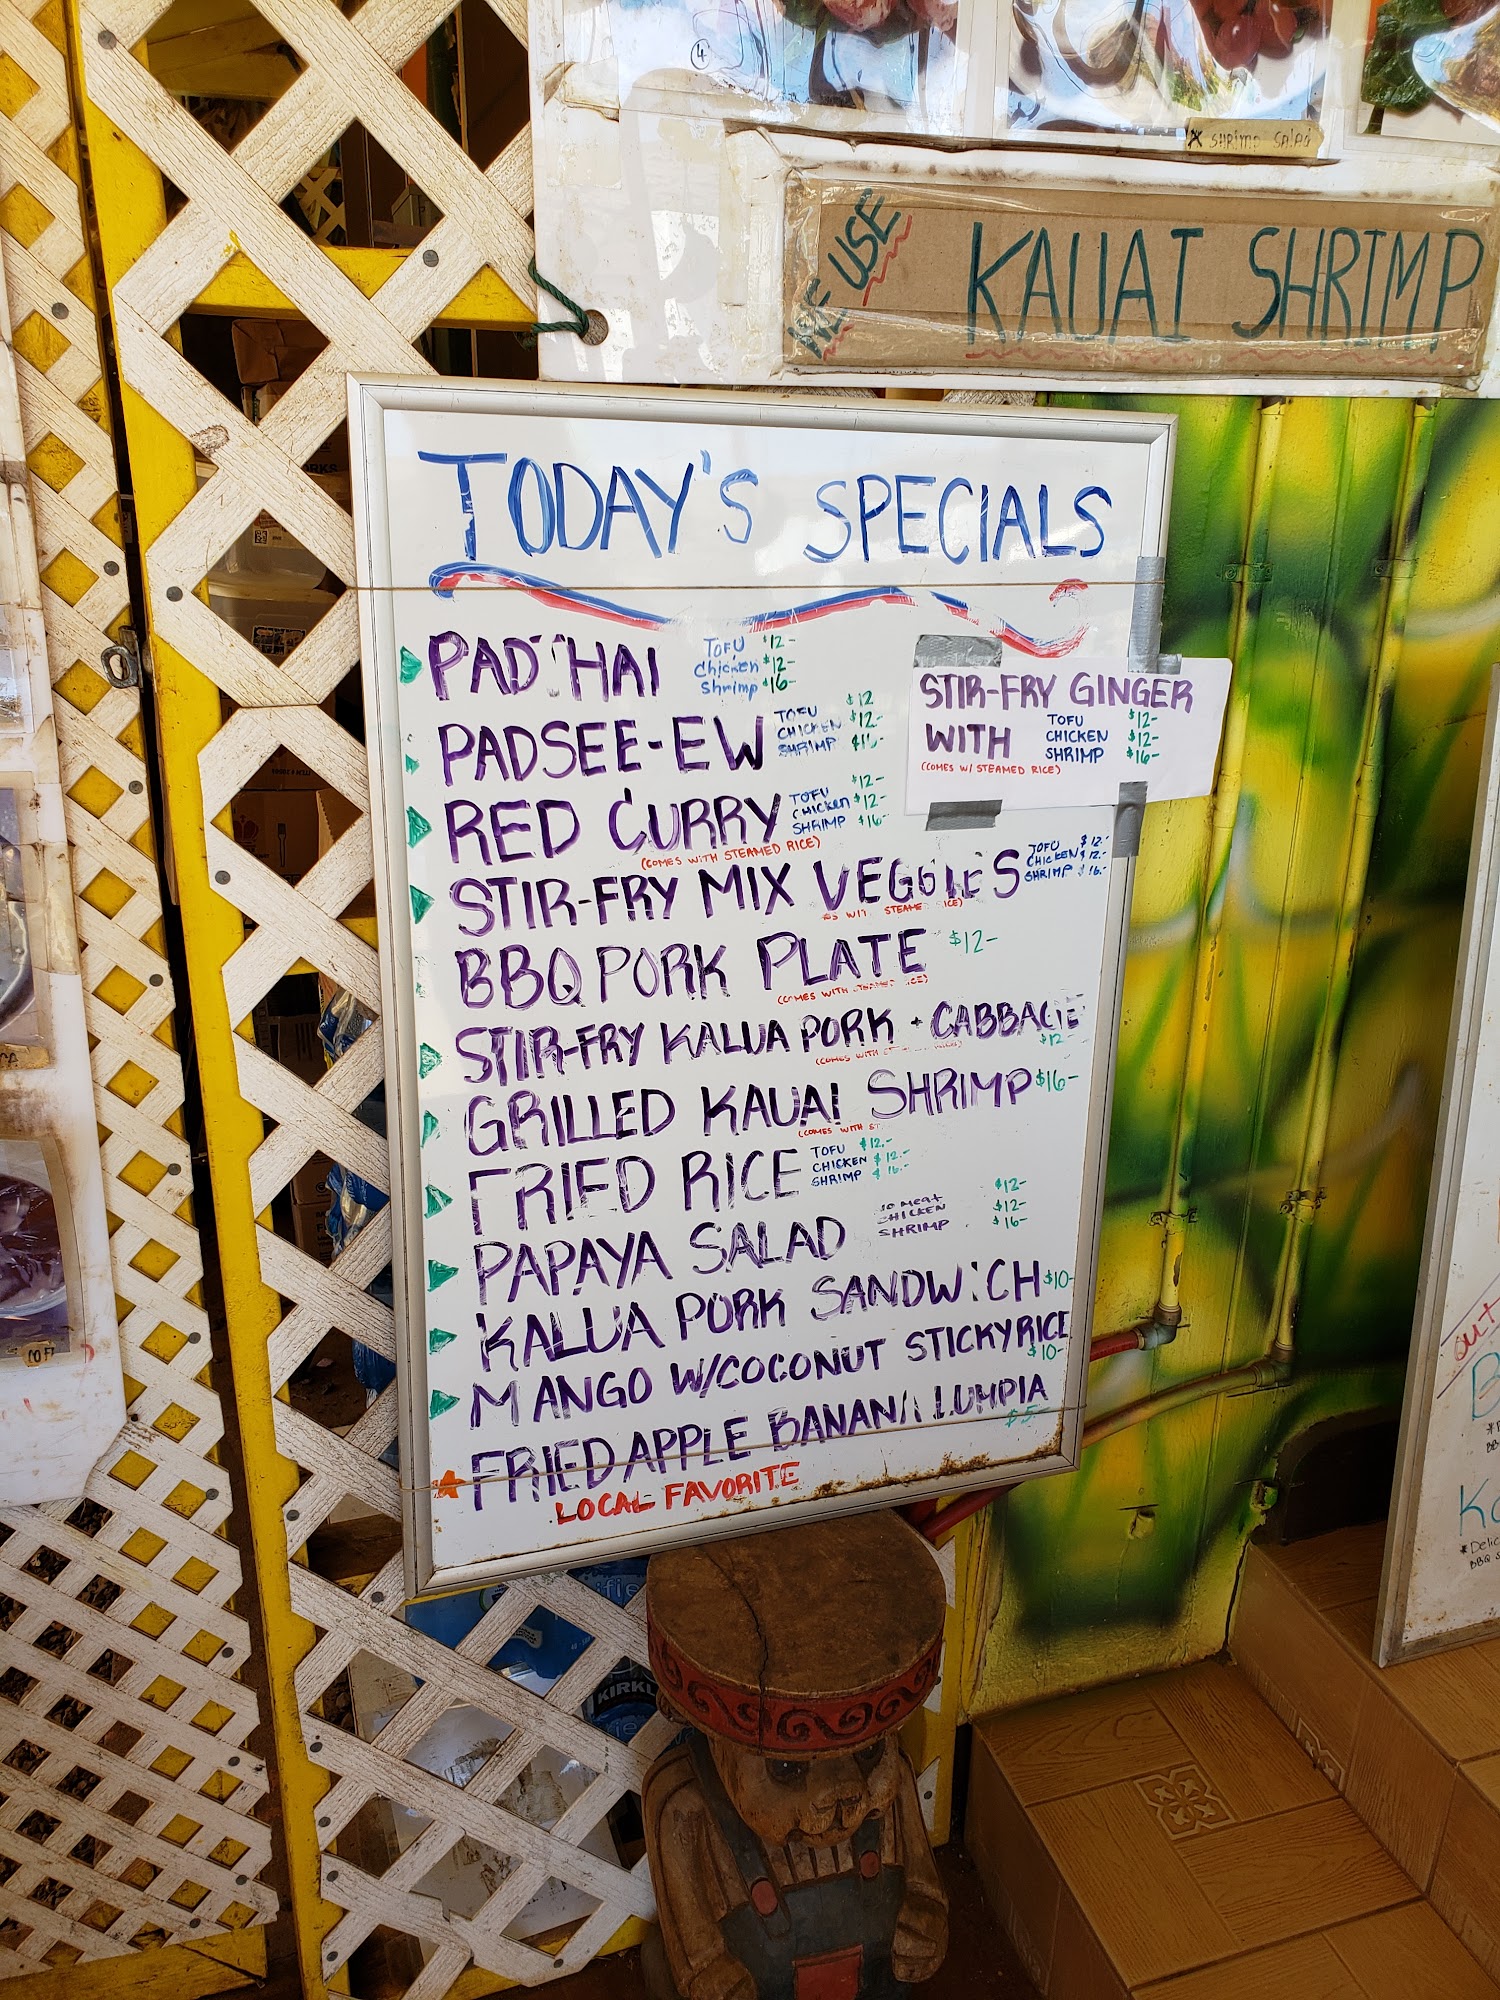 4
* Shrimp Salad
WE USE
KAUAI SHRIMP
TODAY'S SPECIALS
PAD THAI
TOFU $12-
Chicken $12-
Shrimp $16-
STIR-FRY GINGER
WITH
TOFU $12-
CHICKEN $12-
SHRIMP $16-
(COMES W/ STEAMED RICE)
PADSEE-EW
$12
TOFU $12-
CHICKEN
SHRIMP $16-
RED CURRY
$12-
TOFU
CHICKEN $12-
SHRIMP $16-
(COMES WITH STEAMED RICE)
STIR-FRY MIX VEGGIES
TOFU $12-
CHICKEN $12-
SHRIMP $16-
STEAME
BBQ PORK PLATE $12-
(COMES WITH
STIR-FRY KALUA PORK + CABBAGE
$12-
(COMES WITH
GRILLED KAUAI SHRIMP $16-
(COMES WITH ST
FRIED RICE
TOFU $12.-
CHICKEN $12.-
SHRIMP $16.-
PAPAYA SALAD
NO MEAT $12-
CHICKEN $12-
SHRIMP $16-
KALUA PORK SANDWICH $10-
MANGO W/COCONUT STICKY RICE
$10-
FRIED APPLE BANANA LUMPIA
$5-
LOCAL FAVORITE
out
KIRKL